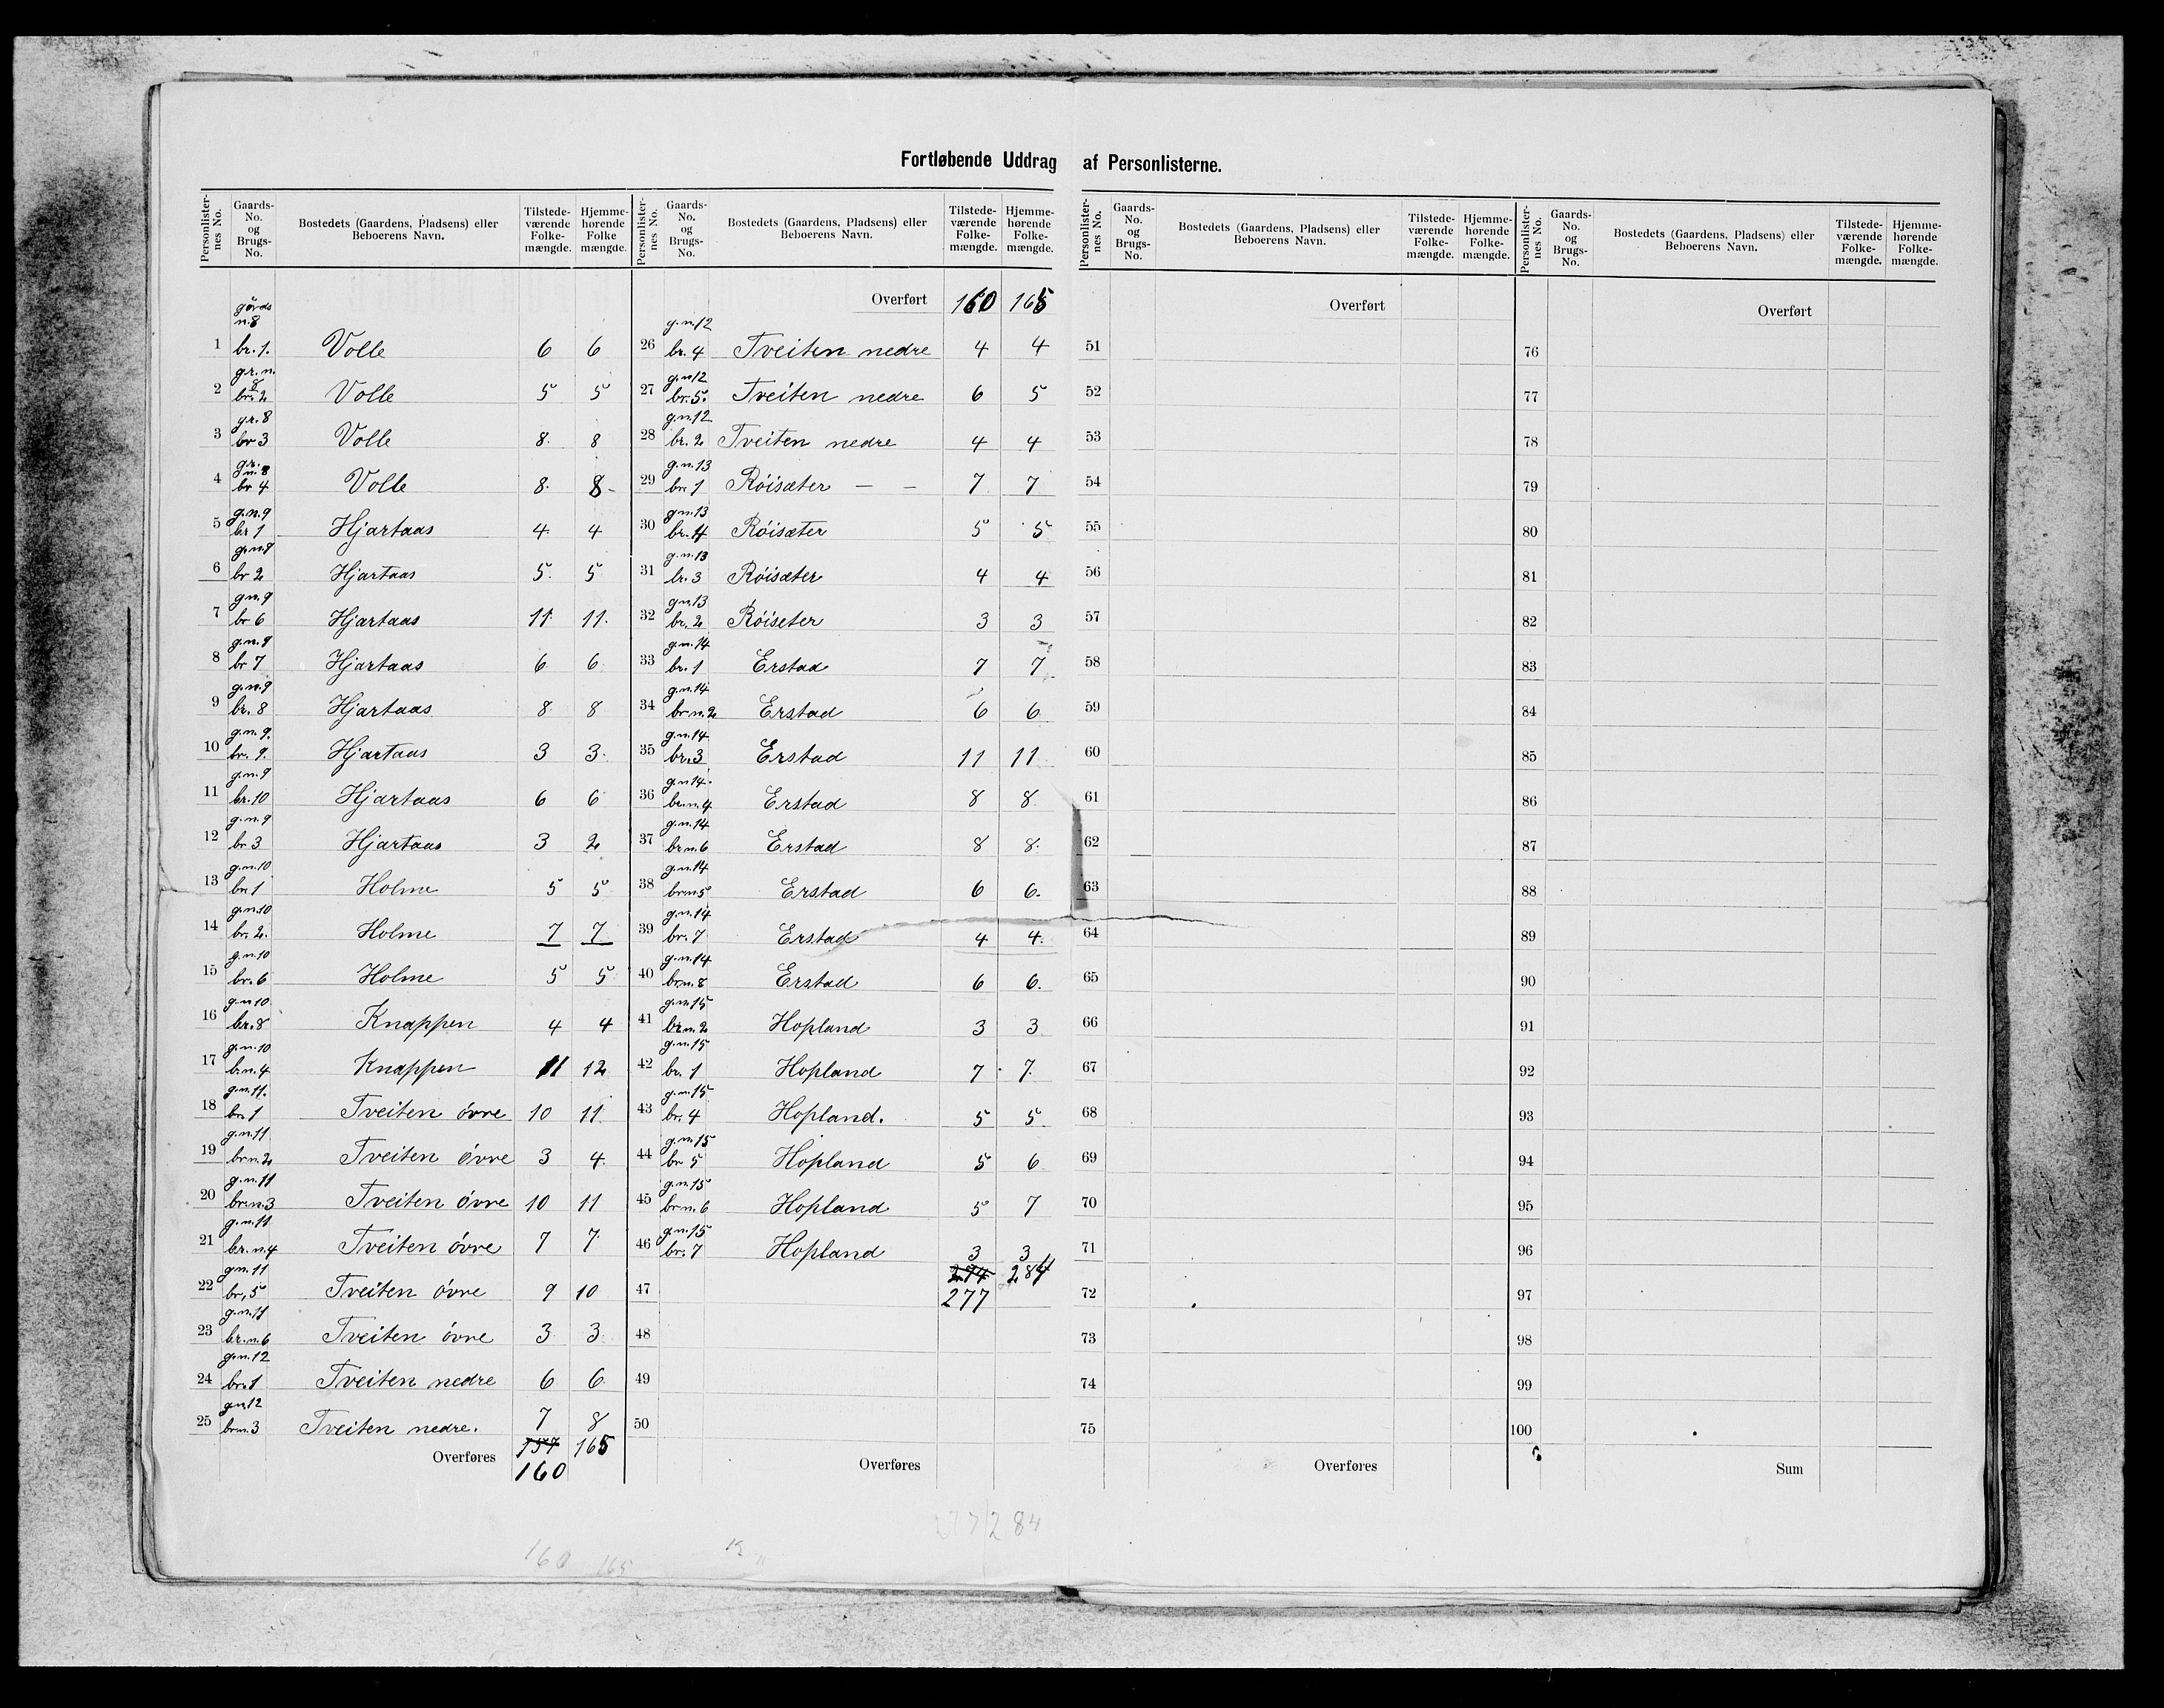 Fortløbende Uddrag af Personlisterne.
Personlister-nes No. Gaards-No. og Brugs-No. Bostedets (Gaardens, Pladsens) eller Beboerens Navn. Tilstede-værende Folke-mængde. Hjemme-hørende Folke mængde.
gårds n. 8
1 br. 1. Volle 6 6
gr. n. 8
2 br. 2 Volle 5 5
gr. 8
3 br 3 Volle 8 8
gr. n. 8
4 br 4 Volle 8 8
g.n. 9
5 br 1 Hjartaas 4 4
g.n. 9
6 br 2 Hjartaas 5 5
g.n. 9
7 br 6 Hjartaas 11 11
g.n. 9
8 br 7 Hjartaas 6 6
g.n. 9
9 br. 8 Hjartaas 8 8
g.n. 9.
10 br. 9. Hjartaas 3 3
g.n. 9
11 br. 10 Hjartaas 6 6
g.n. 9
12 br. 3 Hjartaas 3 2
g.n. 10
13 br. 1 Holme 5 5
g.n. 10
14 br. 2. Holme 7 7
g.n. 10
15 br. 6 Holme 5 5
g.n 10.
16 br. 8 Knappen 4 4
g.n. 10
17 br.n. 4 Knappen 11 12
g.n. 11.
18 br. 1 Tveiten övre 10 11
g.n. 11
19 br.n. 2 Tveiten övre 3 4
g.n. 11
20 br.n. 3 Tveiten övre 10 11
g.n. 11
21 br.n. 4 Tveiten övre 7 7
g.n. 11
22 br. 5 Tveiten övre 9 10
g.n. 11
23 br.n. 6 Tveiten övre 3 3
g.n. 12
24 br. 1 Tveiten nedre 6 6
g.n. 12
25 br.n. 3 Tveiten nedre. 7 8
Overføres 157 165
160
160 165
Personlister-nes No. Gaards-No. og Brugs-No. Bostedets (Gaardens, Pladsens) eller Beboerens Navn. Tilstede-værende Folke-mængde. Hjemme-hørende Folke-mængde.
Overført 160 165
g.n. 12
26 br. 4 Tveiten nedre 4 4
g.n 12
27 br. 5. Tveiten nedre 6 5
g.n. 12
28 br. 2 Tveiten nedre 4 4
g.n. 13
29 br. 1 Röisæter — — 7 7
g.n. 13
30 br. 4 Röisæter 5 5
g.n. 13
31 br. 3 Röisæter 4 4
g.n. 13
32 br. 2 Röiseter 3 3
g.n. 14
33 br. 1 Erstad 7 7
g.n. 14
34 br.n. 2 Erstad 6 6
g.n. 14
35 br. 3 Erstad 11 11
g.n 14.
36 br.n. 4 Erstad 8 8
g.n. 14
37 br.n. 6 Erstad 8 8
g.n. 14
38 br.n. 5 Erstad 6 6.
g.n. 14
39 br. 7 Erstad 4 4.
g.n. 14
40 br.n. 8 Erstad 6 6.
g.n. 15
41 br.n. 2 Hopland 3 3
g.n. 15
42 br. 1 Hopland 7 7
g.n. 15
43 br. 4 Hopland. 5 5
g.n. 15
44 br 5 Hopland 5 6
g.n. 15
45 br.n. 6 Hopland 5 7
g.n. 15
46 br. 7 Hopland 3 3
274 284
47 277
48
49
50
Overføres
277 284
Personlister-nes No. Gaards-No. og Brugs-No. Bostedets (Gaardens, Pladsens) eller Beboerens Navn. Tilstede-værende Folke-mængde. Hjemme-hørende Folke-mængde.
Overført
51
52
53
54
55
56
57
58
59
60
61
62
63
64
65
66
67
68
69
70
71
72
73
74
75
Overføres
Personlister-nes No. Gaards-No. og Brugs-No. Bostedets (Gaardens, Pladsens) eller Beboerens Navn. Tilstede-værende Folke-mængde. Hjemme-hørende Folke-mængde.
Overført
76
77
78
79
80
81
82
83
84
85
86
87
88
89
90
91
92
93
94
95
96
97
98
99
100
Sum